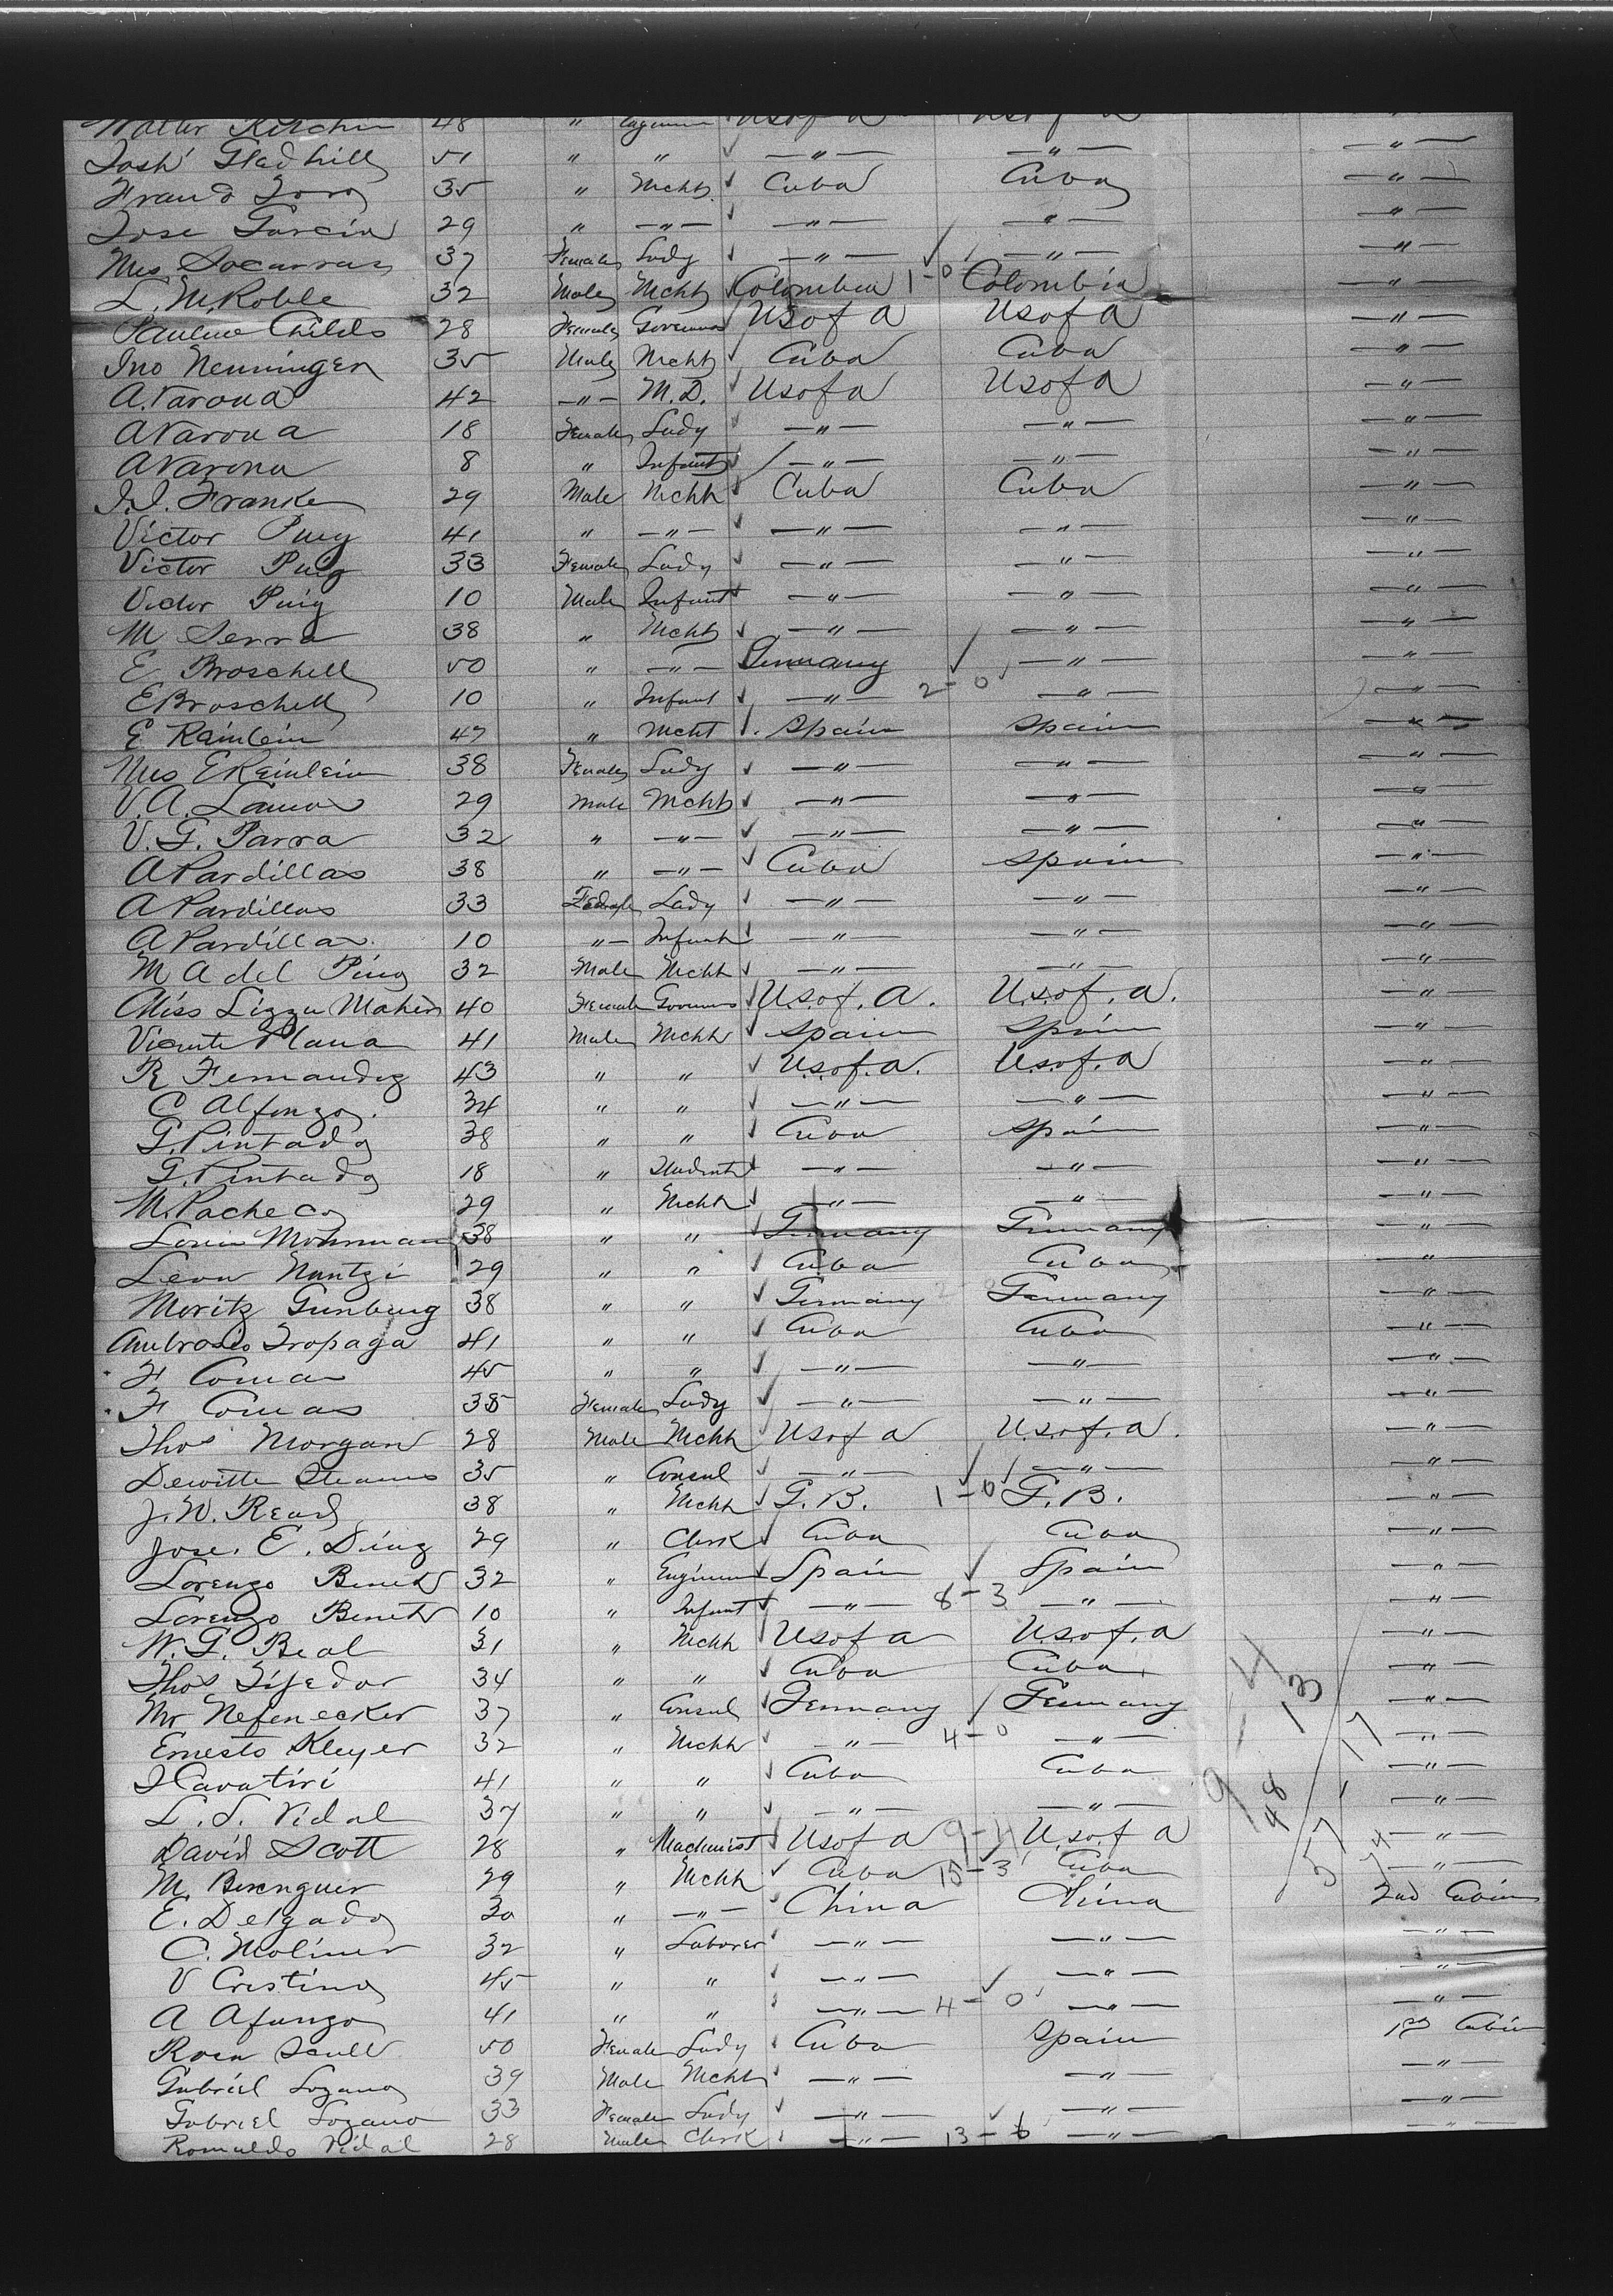 Walter Kitchin 48 " Engineer UsofA UsofA "
Josh Gladhill 51 " " ✓ —"— —"— —"—
35 " Mcht ✓ Cuba Cuba —"—
Jose Garcia 29 " —"— ✓ —"— —"— —"—
Mrs Socarras 37 Female Lady ✓ —"— ✓ —"— —"—
L. M. Roble 32 Male Mcht ✓ Colombia 1-0 Colombia —"—
Pauline Childs 28 Female Governess ✓ UsofA UsofA —"—
Jno Nenninger 35 Male Mcht ✓ Cuba Cuba —"—
A. Varona 42 —"— M.D. ✓ UsofA UsofA —"—
A Varona 18 Female Lady —"— —"— —"—
A Varona 8 " Infant ✓ —"— —"— —"—
Franke 29 Male Mcht ✓ Cuba Cuba —"—
Victor Puig 41 " —"— ✓ —"— —"— —"—
Victor Puig 33 Female Lady ✓ —"— —"— —"—
Victor Puig 10 Male Infant ✓ —"— —"— —"—
M Serra 38 " Mcht ✓ —"— —"— —"—
E Broschell 50 " —"— Germany ✓ —"— —"—
E Broschell 10 " Infant ✓ —"— 2-0 —"— —"—
E Reinlein 47 " Mcht ✓ Spain Spain —"—
Mrs E Reinlein 38 Female Lady ✓ —"— —"— —"—
V. A. 29 Male Mcht ✓ —"— —"— —"—
V. G. Parra 32 " —"— ✓ —"— —"— —"—
A Pardillas 38 " —"— ✓ Cuba Spain —"—
A Pardillas 33 Female Lady ✓ —"— —"— —"—
A Pardillas 10 "— Infant ✓ —"— —"— —"—
M A del Pino 32 Male Mcht ✓ —"— —"— —"—
Miss Lizzie Maher 40 Female Governess ✓ U.S.of.A. U.S.of.A. —"—
Vicente Plana 41 Male Mcht ✓ Spain Spain —"—
R Fernandez 43 " " ✓ U.S.of.A. U.S.of.A —"—
C Alfonzo. 34 " " ✓ —"— —"— —"—
G. Pintado 38 " " ✓ Cuba Spain —"—
G. Pintado 18 " Student ✓ —"— —"— —"—
M. Pacheco 29 " Mcht ✓ —"— —"— —"—
Mohrman 38 " " ✓ Germany Germany —"—
Leon Nantzi 29 " " ✓ Cuba Cuba —"—
Moritz Gunburg 38 " " ✓ Germany Germany —"—
Ambrosio Tropaga 41 " " ✓ Cuba Cuba —"—
F Comas 45 " " ✓ —"— —"— —"—
F Comas 38 Female Lady ✓ —"— —"— —"—
Thos Morgan 28 Male Mcht ✓ Usof A U.S.of.A. —"—
Dewitte Stearns 35 " Consul ✓ —"— ✓ —"— —"—
J. W. Read 38 " Mcht ✓ G.B. 1-0 G.B. —"—
Jose. E. Diaz 29 " Clerk ✓ Cuba Cuba —"—
Lorenzo Benet 32 " Engineer ✓ Spain ✓ Spain "
Lorenzo Benet 10 " Infant ✓ —"— 8-3 —"— —"—
W. G. Beal 31 " Mcht ✓ Usof A U.S.of.A —"—
Thos Tijedor 34 " " ✓ Cuba Cuba —"—
Mr Nefenecker 37 " Consul ✓ Germany Germany —"—
Ernesto Kleyer 32 " Mcht ✓ —"— 4-0 —"— —"—
J Cavatiri 41 " " ✓ Cuba Cuba —"—
L. S. Vidal 37 " " ✓ —"— —"— —"—
David Scott 28 " Machinist ✓ Usof A 9-4 U.S.of A —"—
M. Berenguer 29 " Mcht ✓ Cuba 15-3 Cuba —"—
E. Delgado 30 " —"— ✓ China China 2nd Cabin
C. Moliner 32 " Laborer ✓ —"— —"— —"—
V Cristino 45 " " ✓ —"— ✓ —"— —"—
A Afunzo 41 " " ✓ —"— 4-0 —"— —"—
Rosa Scull 50 Female Lady ✓ Cuba Spain 1st Cabin
Gabriel Lozano 39 Male Mcht ✓ —"— —"— —"—
Gabriel Lozano 33 Female Lady ✓ —"— ✓ —"— —"—
Romualdo Vidal 28 Male Clerk ✓ —"— 13-6 —"— —"—